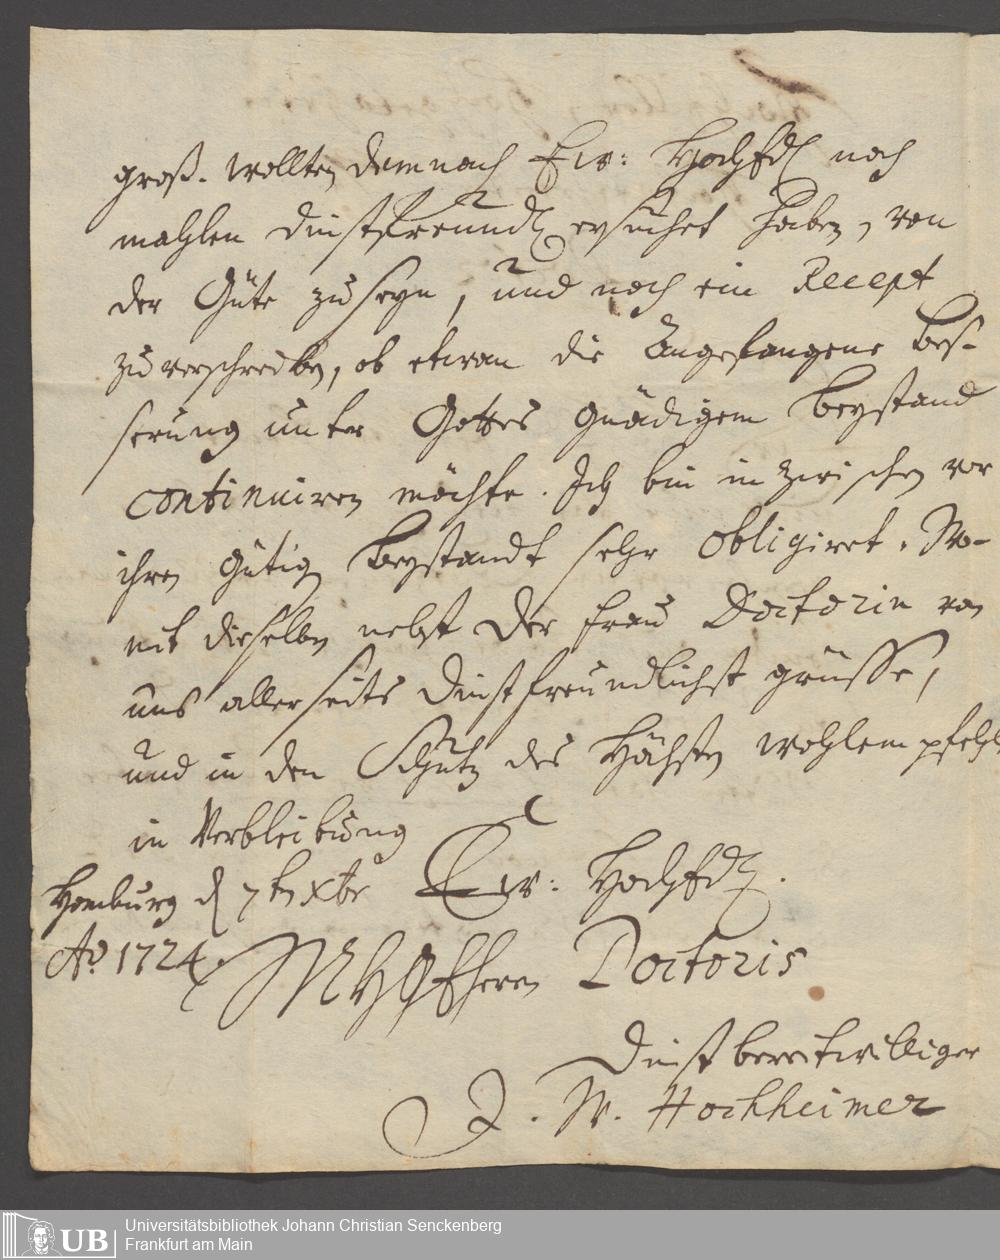 groß. wollten demnach Ew: Hochfdl noch
mahlen dinstfreundl ersuchet haben, von
der Güte zu seyn, und noch ein Recept
zu verschreiben, ob etwan die Angefangene Bes-
serung unter Gottes gnädigem beystand
continuiren möchte. Ich bin in zwischen vor
ihren gütigen beystandt sehr obligiret. Wo-
mit dieselben nebst der Frau Doctorin von
uns allerseits dinstfreundlichst grüsse,
und in den Schutz des Höchsten wohlempfehle
in Verbleibung
Ew: Hochfdl.
Homburg d 7ten Xbr
Ao 1724.
MHgfherrn Doctoris
Dinstbereitwilliger
J. W. Hochheimer
UB Universitätsbibliothek Johann Christian Senckenberg
Frankfurt am Main